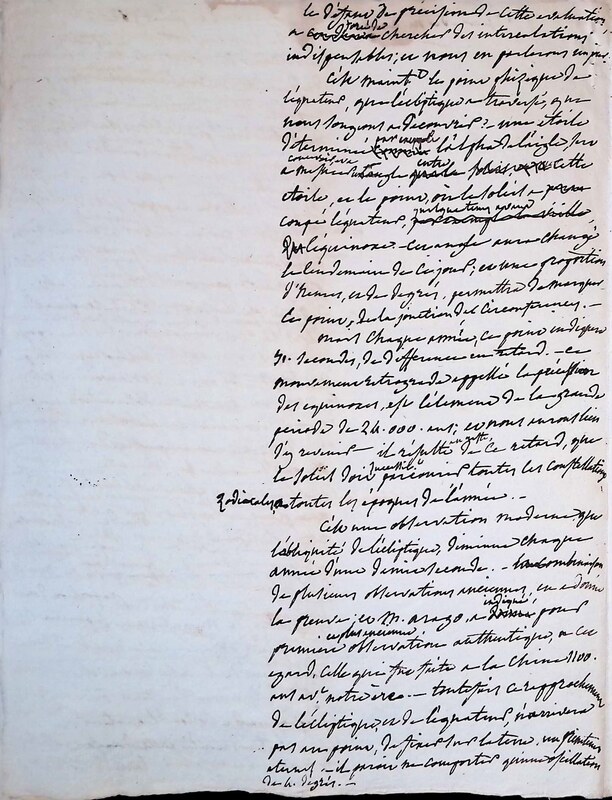 le défaut de précision de cette evaluation,
a forcé de chercher des intercalations
indispensables; et nous en parlerons un jour.
C'est maint^t le point phizique de
l'équateur, que l'écliptique a traversé, que
nous songeons a découvrir: - une étoile
déterminée par exemple l'alpha de l'aigle, sera
a mesurer l'angle entre le soleil, cette
etoile, et le point, où le soleil a
coupé l'équateur, quelque tems avant
l'équinoxe. - cet angle aura changé
le lendemain de ce jour; et une proportion
d'heures, et de degrés, permettra de marquer
ce point, de la jonction des circonférences. -
mais chaque année, ce point indiquera
50. secondes, de différence en retard. - ce
mouvement rétrograde appellé la précession
des equinoxes, est l'élement de la grande
période de 26.000. ans; et nous aurons lieu
d'y revenir - il résulte de ce retard, que
le soleil doit parcourir toutes les constellations
zodiacales, a toutes les époques de l'année. -
C'est une observation moderne que
l'obliquité de l'écliptique, diminue chaque
année d'une demie seconde. - combinaison
de plusieurs observations anciennes, en a donné
la preuve; et M. arago, a indiqué pour
première et plus ancienne observation authentique, a cet
egard, celle qui fut faite a la Chine 1100.
ans av^t notre ère. - toutefois ce rapprochement
de l'écliptique, et de l'équateur, n'arrivera
pas au point, de fixer sur la terre, un printems
eternel. - il paroit ne comporter qu'une oscillation
de 4. degrés. -